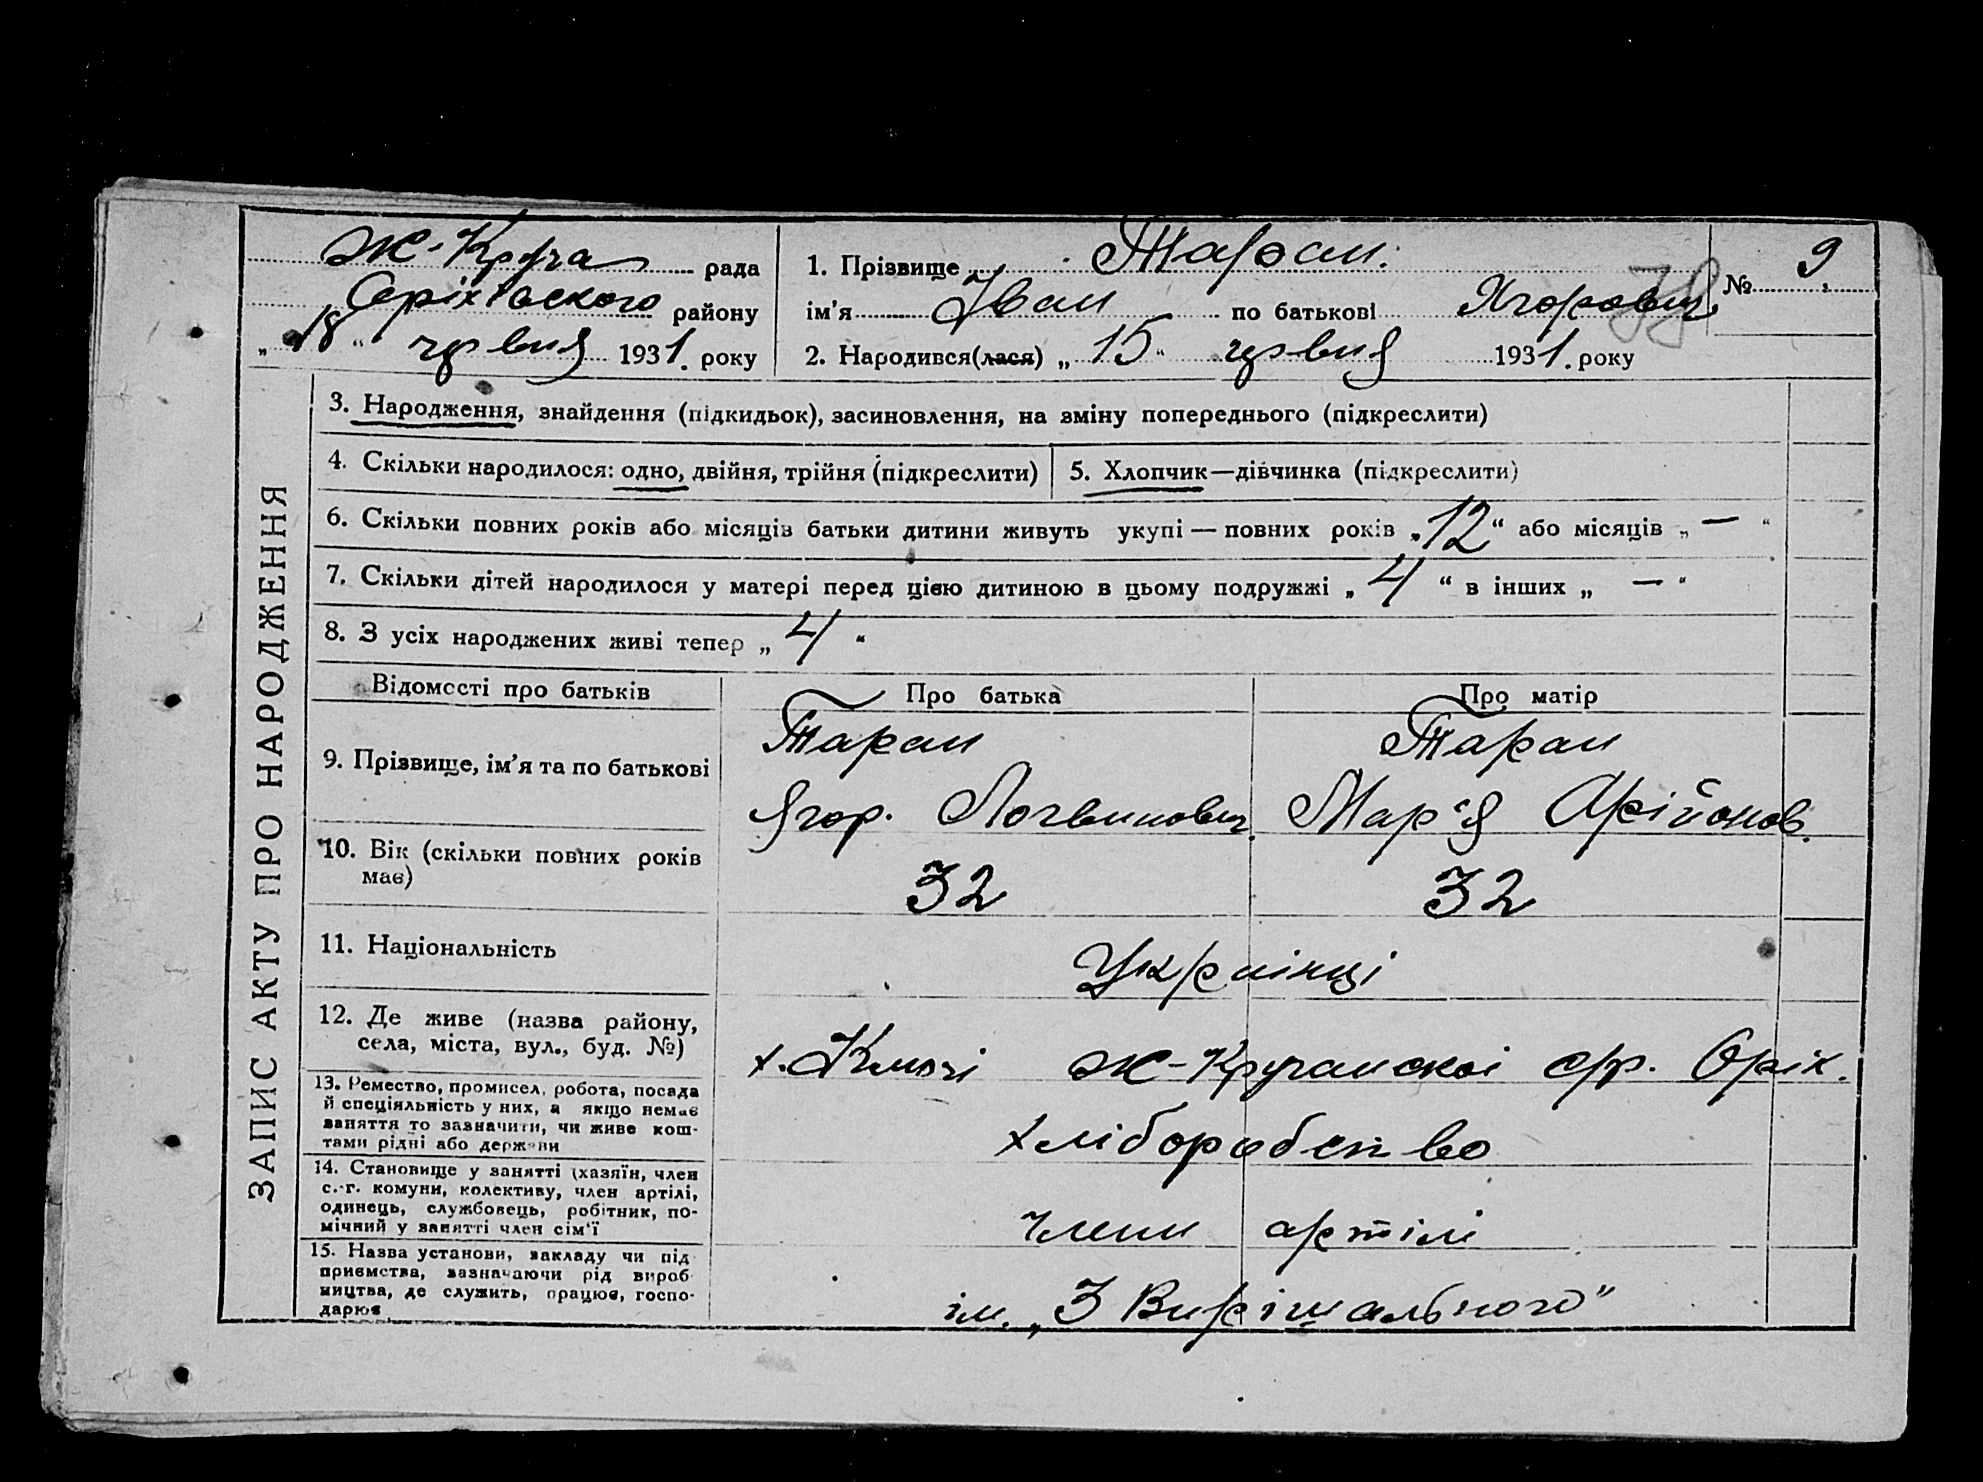 Ж-Круча рада
Оріхівського району
„18" червня 1931. року
1. Прізвище Таран.
ім'я Іван по батькові Ягорович
2. Народився(лася) „15" червня 1931. року
№ 9
ЗАПИС АКТУ ПРО НАРОДЖЕННЯ
3. Народження, знайдення (підкидьок), засиновлення, на зміну попереднього (підкреслити)
4. Скільки народилося: одно, двійня, трійня (підкреслити)
5. Хлопчик—дівчинка (підкреслити)
6. Скільки повних років або місяців батьки дитини живуть укупі — повних років „12" або місяців „—"
7. Скільки дітей народилося у матері перед цією дитиною в цьому подружжі „4" в інших „—"
8. З усіх народжених живі тепер „4"
Відомості про батьків Про батька Про матір
9. Прізвище, ім'я та по батькові
Таран Таран
Ягор. Логвинович. Мар'я Арійонов.
10. Вік (скільки повних років
має)
32 32
11. Національність
Українці
12. Де живе (назва району,
села, міста, вул., буд. №)
х. Ключі Ж-Кручанскоі с/р. Оріх.
13. Ремество, промисел, робота, посада
й спеціяльність у них, а якщо немає
заняття то зазначити, чи живе кош-
тами рідні або держави
хліборобство
14. Становище у занятті (хазяїн, член
с.-г. комуни, колективу, член артілі,
одинець, службовець, робітник, по-
мічний у занятті член сім'ї
члени артілі
15. Назва установи, закладу чи під
приємства, зазначаючи рід вироб
ництва, де служить, працює, госпо-
дарює
ім. „3 Вирішального"